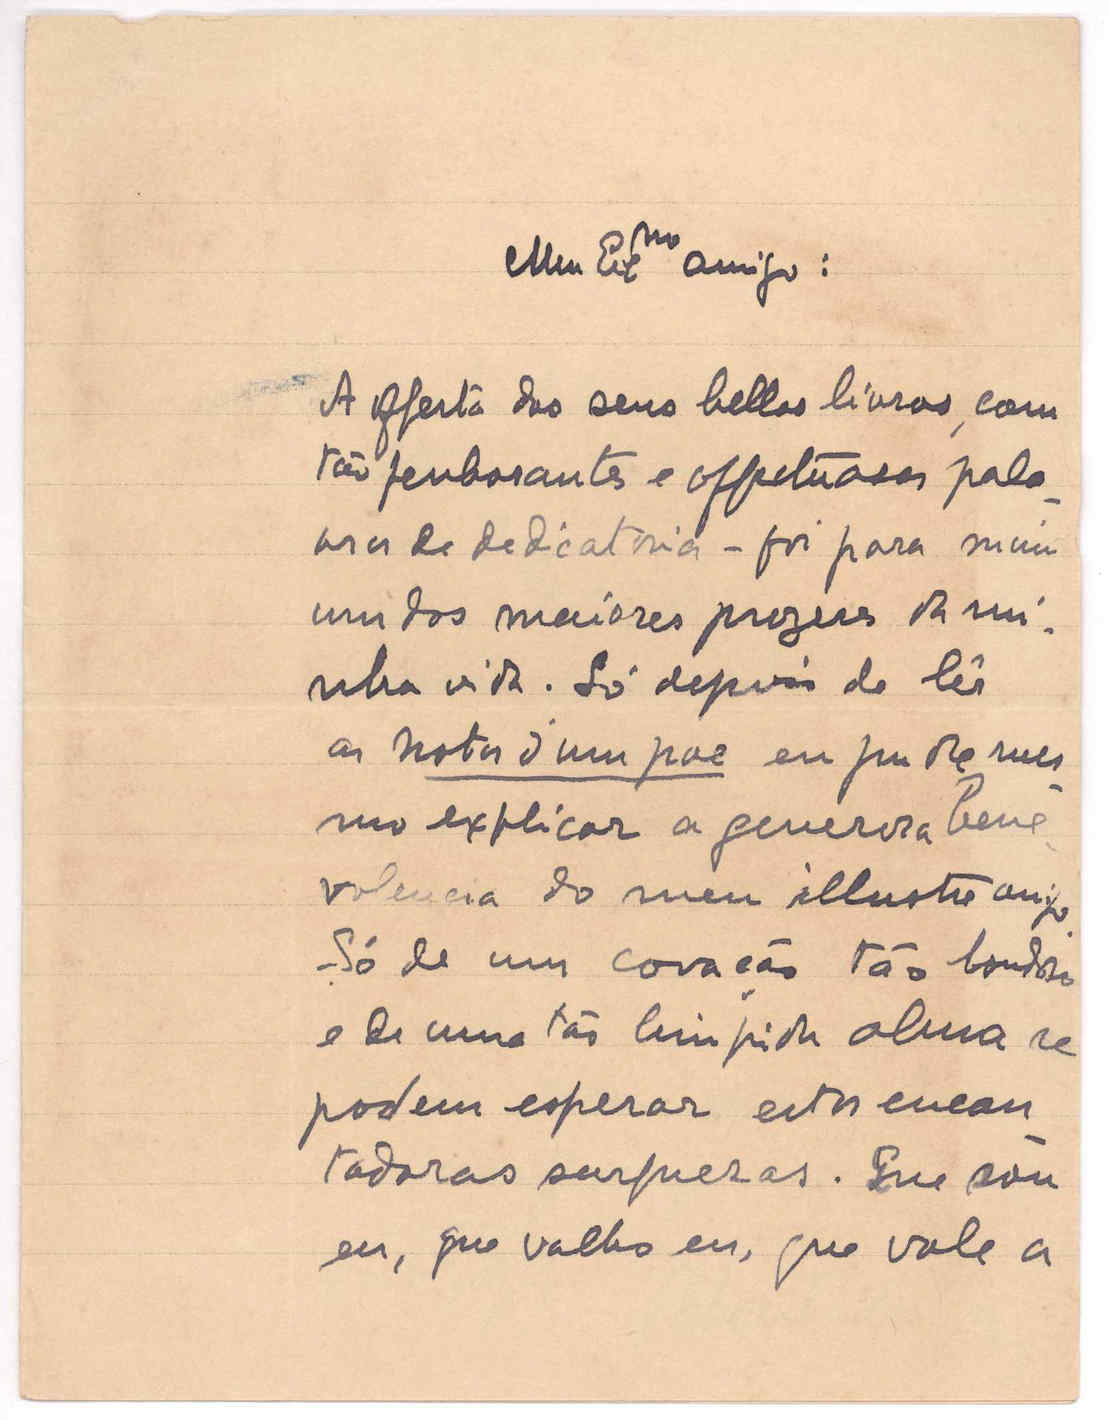 Meu Exmo amigo:
A offerta dos seus bellos livros, com
tão penhorantes e affectuosas pala-
vras de dedicatoria - foi para mim
um dos maiores prazeres da mi-
nha vida. Só depois de lêr
as Notas d'um pae eu pude mes
mo explicar a generosa bene-
volencia do meu illustre amigo.
-Só de um coração tão bondoso
e de uma tão limpida alma se
podem esperar estas encan
tadoras surprezas. Que sou
eu, que valho eu, que vale a